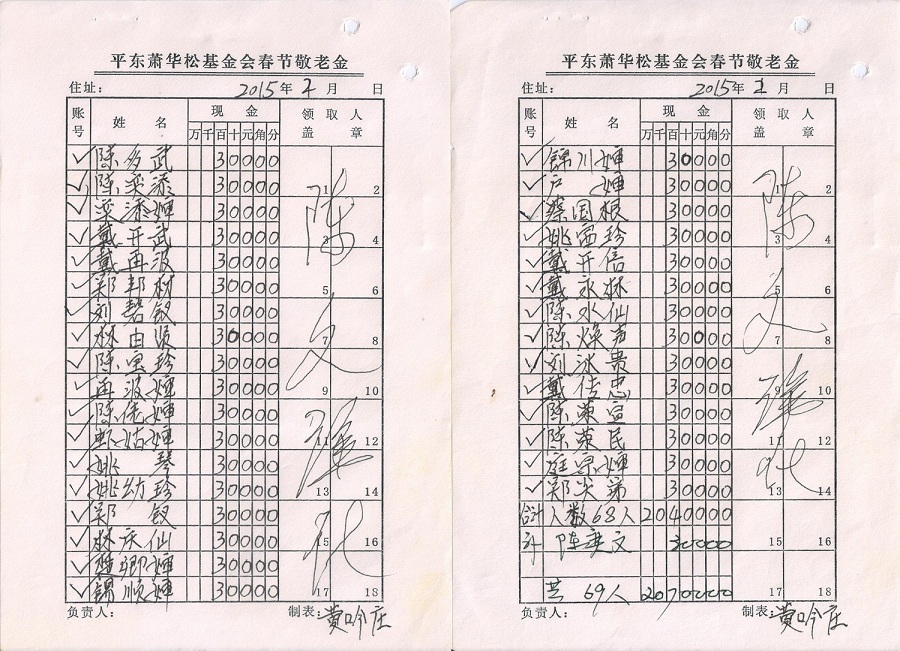 平东萧华松基金会春节敬老金
住址: 2015年 2月 日
账号 姓名 现金 领取人盖章
万千百十元角分
陈 武 30000
陈荣添 30000
荣添婶 30000
戴开武 30000
戴再波 30000
郑邦树 30000
刘碧钗 30000
林由 30000
陈宝珍 30000
再波婶 30000
陈佬婶 30000
姑婶 30000
姚琴 30000
姚幼珍 30000
郑钗 30000
林庆仙 30000
卿婶 30000
锦顺婶 30000
1 2
3 4
5 6
7 8
9 10
11 12
13 14
15 16
17 18
负责人: 制表: 黄吟庄
平东萧华松基金会春节敬老金
住址: 2015年 2月 日
账号 姓名 现金 领取人盖章
万千百十元角分
锦川婶 30000
婶 30000
蔡国根 30000
姚富珍 30000
戴开信 30000
戴永林 30000
陈水仙 30000
陈焕声 30000
刘冰贵 30000
戴传忠 30000
陈荣宣 30000
陈荣民 30000
庭 婶 30000
郑尖弟 30000
合计人数68人 2040000
陈 文 30000
共 69人 2070000
1 2
3 4
5 6
7 8
9 10
11 12
13 14
15 16
17 18
负责人: 制表: 黄吟庄